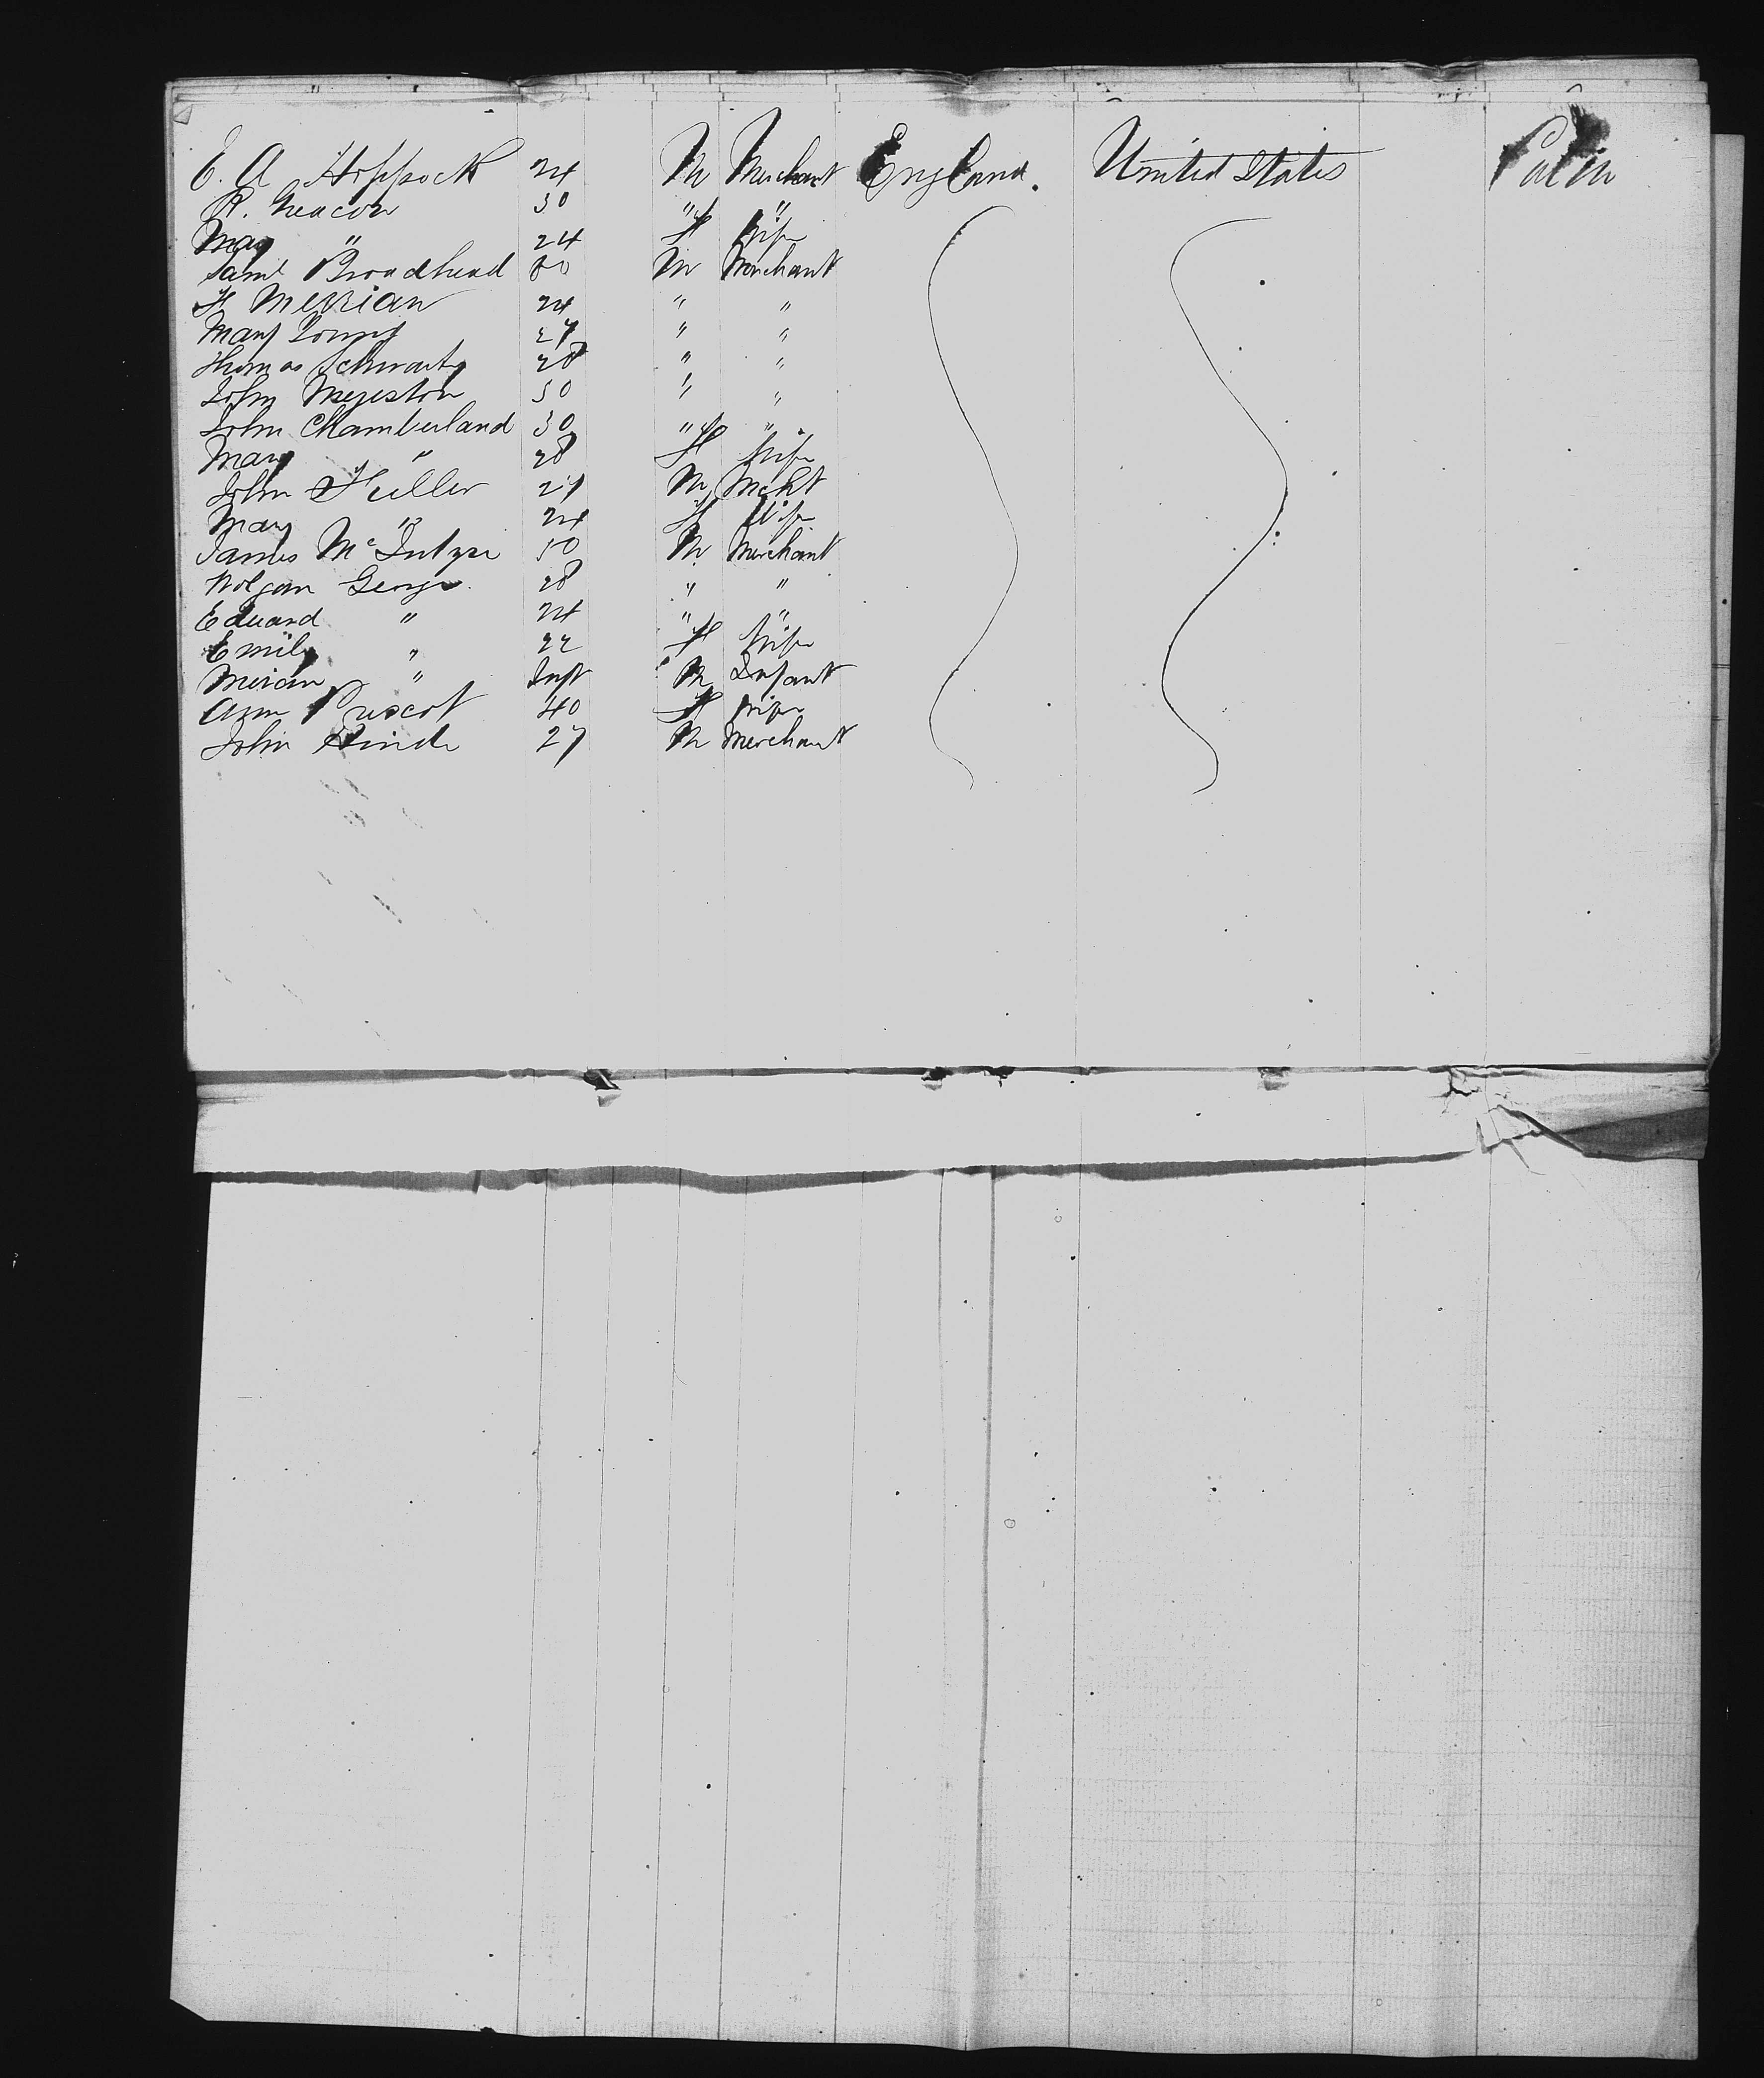 E. A Hoppock 24 M Merchant England. United States Cabin
R. Deacon 30 " "
Mary " 24 F Wife
Saml Broadhead 60 M Merchant
F Merrian 24 " "
Mary Young 27 " "
Thomas Schwartz 28 " "
John Meyeston 50 " "
John Chamberland 30 " "
Mary " 28 F Wife
John Fuller 27 M Mcht
Mary " 24 F Wife
James McIntyre 50 M Merchant
Wolgan George 28 " "
Edward " 24 " "
Emily " 22 F Wife
" Inft M Infant
Ann Prescot 40 F Wife
John Hinde 27 M Merchant